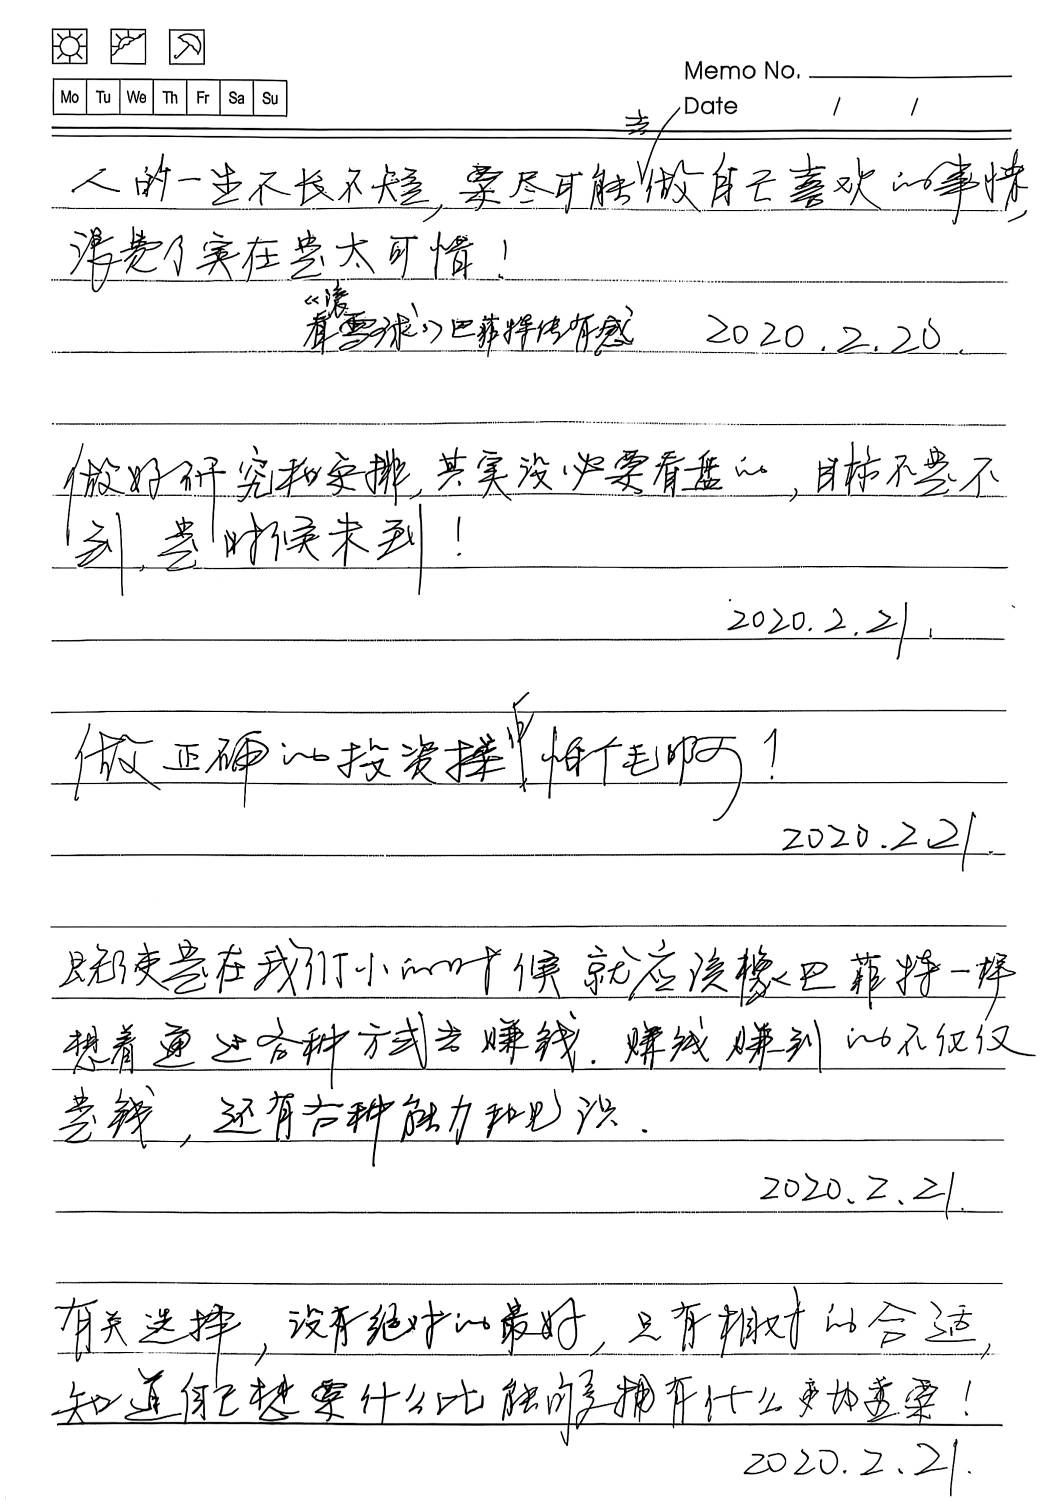 Memo No.
Mo Tu We Th Fr Sa Su
Date / /
人的一生不长不短,要尽可能去做自己喜欢的事情,
浪费了实在是太可惜!
看《滚雪球》巴菲特传有感 2020.2.20.
做好研究和安排,其实没必要看盘的,目标不是不
到,是时候未到!
2020.2.21.
做正确的投资择时怕个毛啊!
2020.2.21.
既使是在我们小的时候就应该像巴菲特一样
想着通过各种方式去赚钱.赚钱赚到的不仅仅
是钱,还有各种能力和见识.
2020.2.21.
有关选择,没有绝对的最好,只有相对的合适,
知道自己想要什么比能够拥有什么更加重要!
2020.2.21.